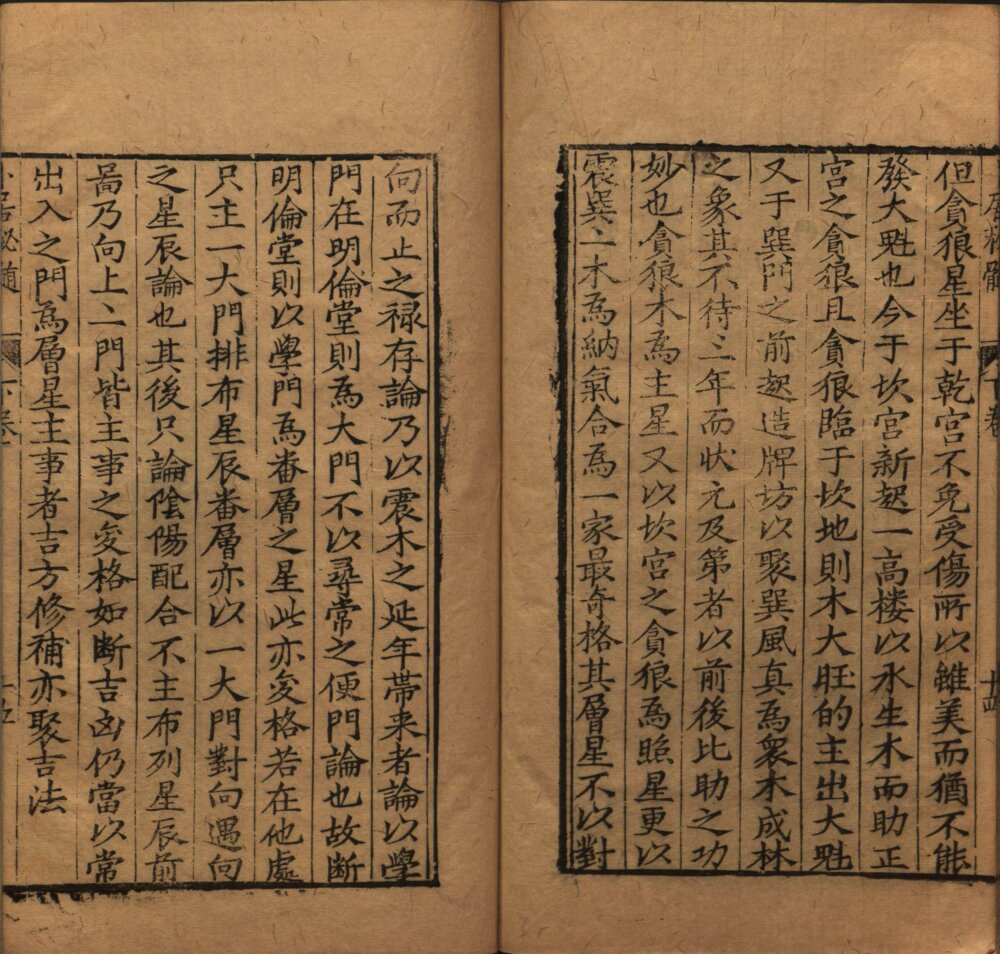 十四
但貪狼星坐于乾宮不免受傷所以雖美而猶不能
發大魁也今于坎宮新起一高楼以水生木而助正
宮之貪狼且貪狼臨于坎地則木大旺的主出大魁
又于巽門之前起造牌坊以聚巽風真為衆木成林
之象其不待三年而状元及第者以前後比助之功
妙也貪狼木為主星又以坎宮之貪狼為照星更以
震巽二木為納氣合為一家最竒格其層星不以對
向而止之禄存論乃以震木之延年帯来者論以學
門在明倫堂則為大門不以尋常之便門論也故断
明倫堂則以學門為番層之星此亦変格若在他處
只主一大門排布星辰番層亦以一大門對向遇向
之星辰論也其後只論陰陽配合不主布列星辰前
啚乃向上二門皆主事之変格如断吉凶仍當以常
出入之門為層星主事者吉方修補亦聚吉法